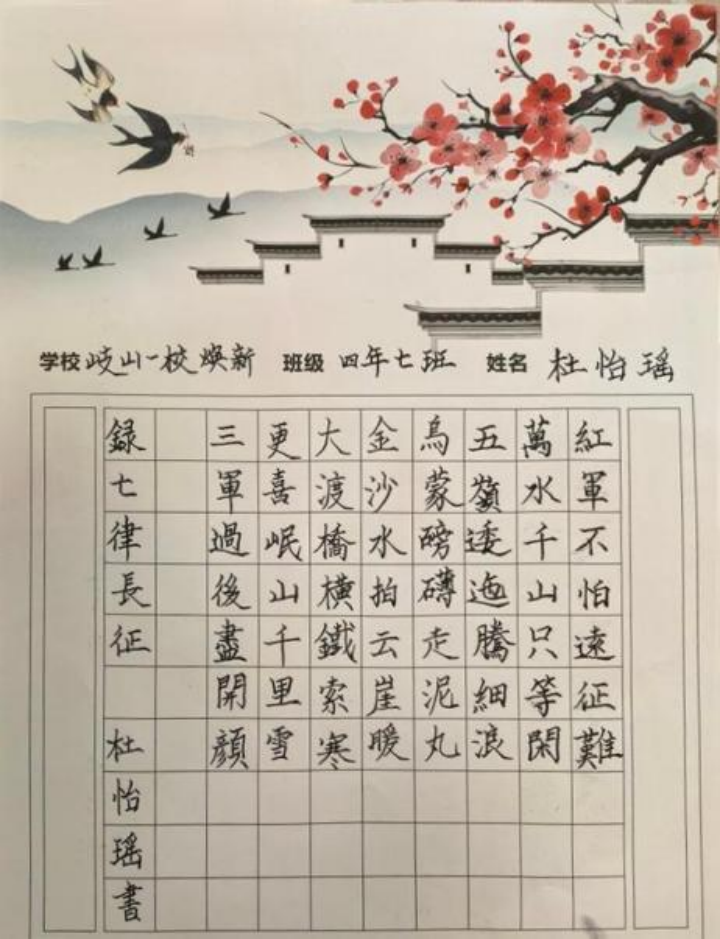 学校 岐山一校焕新 班级 四年七班 姓名 杜怡瑶
紅軍不怕遠征難
萬水千山只等閑
五嶺逶迤騰細浪
烏蒙磅礴走泥丸
金沙水拍云崖暖
大渡橋橫鐵索寒
更喜岷山千里雪
三軍過後盡開顔
録七律長征 杜怡瑶書